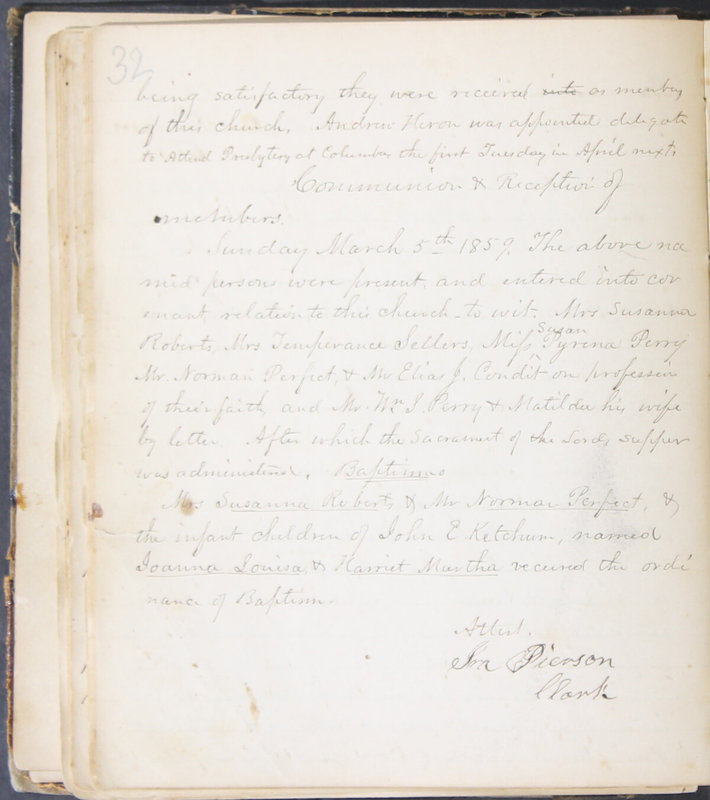 32
being satisfactory they were received into as members
of this church, Andrew Heron was appointed delegate
to Attend Presbytery at Columbus the first Tuesday in April next.
Communion & Reception of
members.
Sunday March 5th 1859. The above na
med persons were present, and entered into cov
enant relation to this church - to wit. Mrs Susanna
Roberts, Mrs Temperance Sellers, Miss Susan Pyrena Perry
Mr. Norman Perfect, & Mr Elias J. Condit on profession
of their faith, and Mr. Wm I. Perry & Matilda his wife
by letter. After which the Sacrament of the Lords supper
was administered. Baptisms
Mrs Susanna Roberts & Mr Norman Perfect, &
the infant children of John E Ketchum, named
Joanna Louisa, & Harriet Martha received the ordi
nance of Baptism.
Attest.
Ira Pierson
Clark